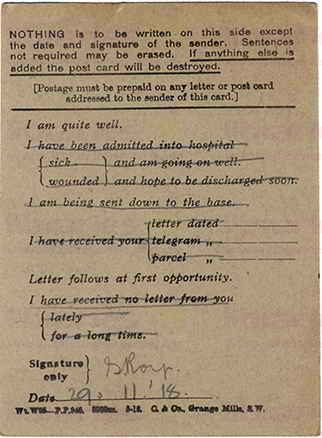 NOTHING is to be written on this side except
the date and signature of the sender. Sentences
not required may be erased. If anything else is
added the post card will be destroyed.
[Postage must be prepaid on any letter or post card
addressed to the sender of this card.]
I am quite well.
I have been admitted into hospital
sick and am going on well.
wounded and hope to be discharged soon.
I am being sent down to the base.
letter dated
I have received your telegram „
parcel „
Letter follows at first opportunity.
I have received no letter from you
lately
for a long time.
Signature
only
Date 29. 11. '18.
C. & Co., Grange Mills, S.W.